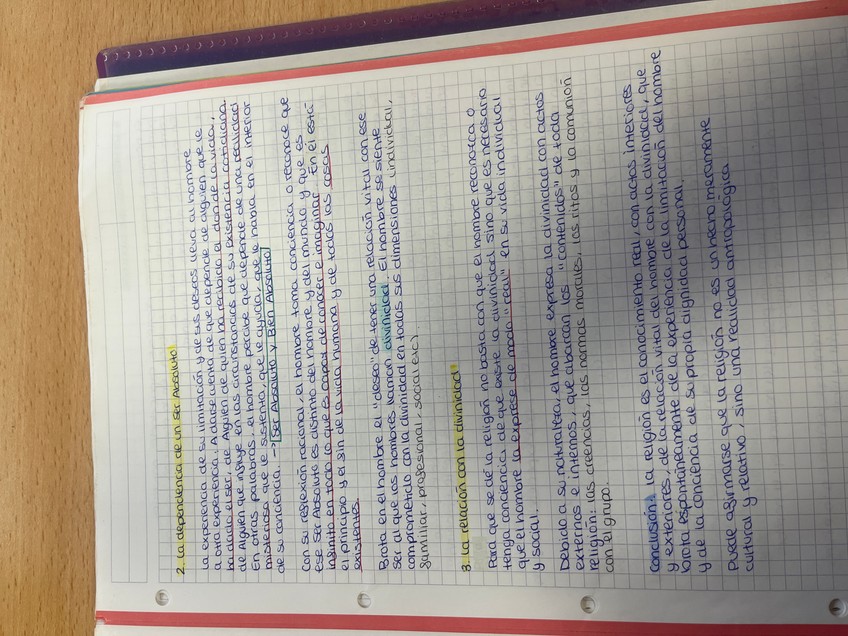 2. La dependencia de un Ser Absoluto
La experiencia de su limitación y de sus deseos lleva al hombre
a otra experiencia: A darse cuenta de que depende de alguien que le
ha dado el ser, de Alguien de quien ha recibido el don de la vida,
de Alguien que influye en las circunstancias de su existencia cotidiana.
En otras palabras, el hombre percibe que depende de una realidad
misteriosa que le sustenta, que le ayuda, que le habla en el interior
de su conciencia. → Ser Absoluto y Bien Absoluto
Con su reflexión racional, el hombre toma conciencia o reconoce que
ese Ser Absoluto es distinto del hombre y del mundo y que es
infinito en todo lo que es capaz de conocer e imaginar. En él está
el principio y el fin de la vida humana y de todas las cosas
existentes.
Brota en el hombre el "deseo" de tener una relación vital con ese
ser al que los hombres llaman divinidad. El hombre se siente
comprometido con la divinidad en todas sus dimensiones (individual,
familiar, profesional, social etc)
3. La relación con la divinidad
Para que se dé la religión no basta con que el hombre reconozca o
tenga conciencia de que existe la divinidad, sino que es necesario
que el hombre la exprese de modo "real" en su vida individual
y social.
Debido a su naturaleza, el hombre expresa la divinidad con actos
externos e internos, que abarcan los "contenidos" de toda
religión: las creencias, las normas morales, los ritos y la comunión
con el grupo.
Conclusión: La religión es el conocimiento real, con actos interiores
y exteriores, de la relación vital del hombre con la divinidad, que
brota espontáneamente de la experiencia de la limitación del hombre
y de la conciencia de su propia dignidad personal.
Puede afirmarse que la religión no es un hecho meramente
cultural y relativo, sino una realidad antropológica